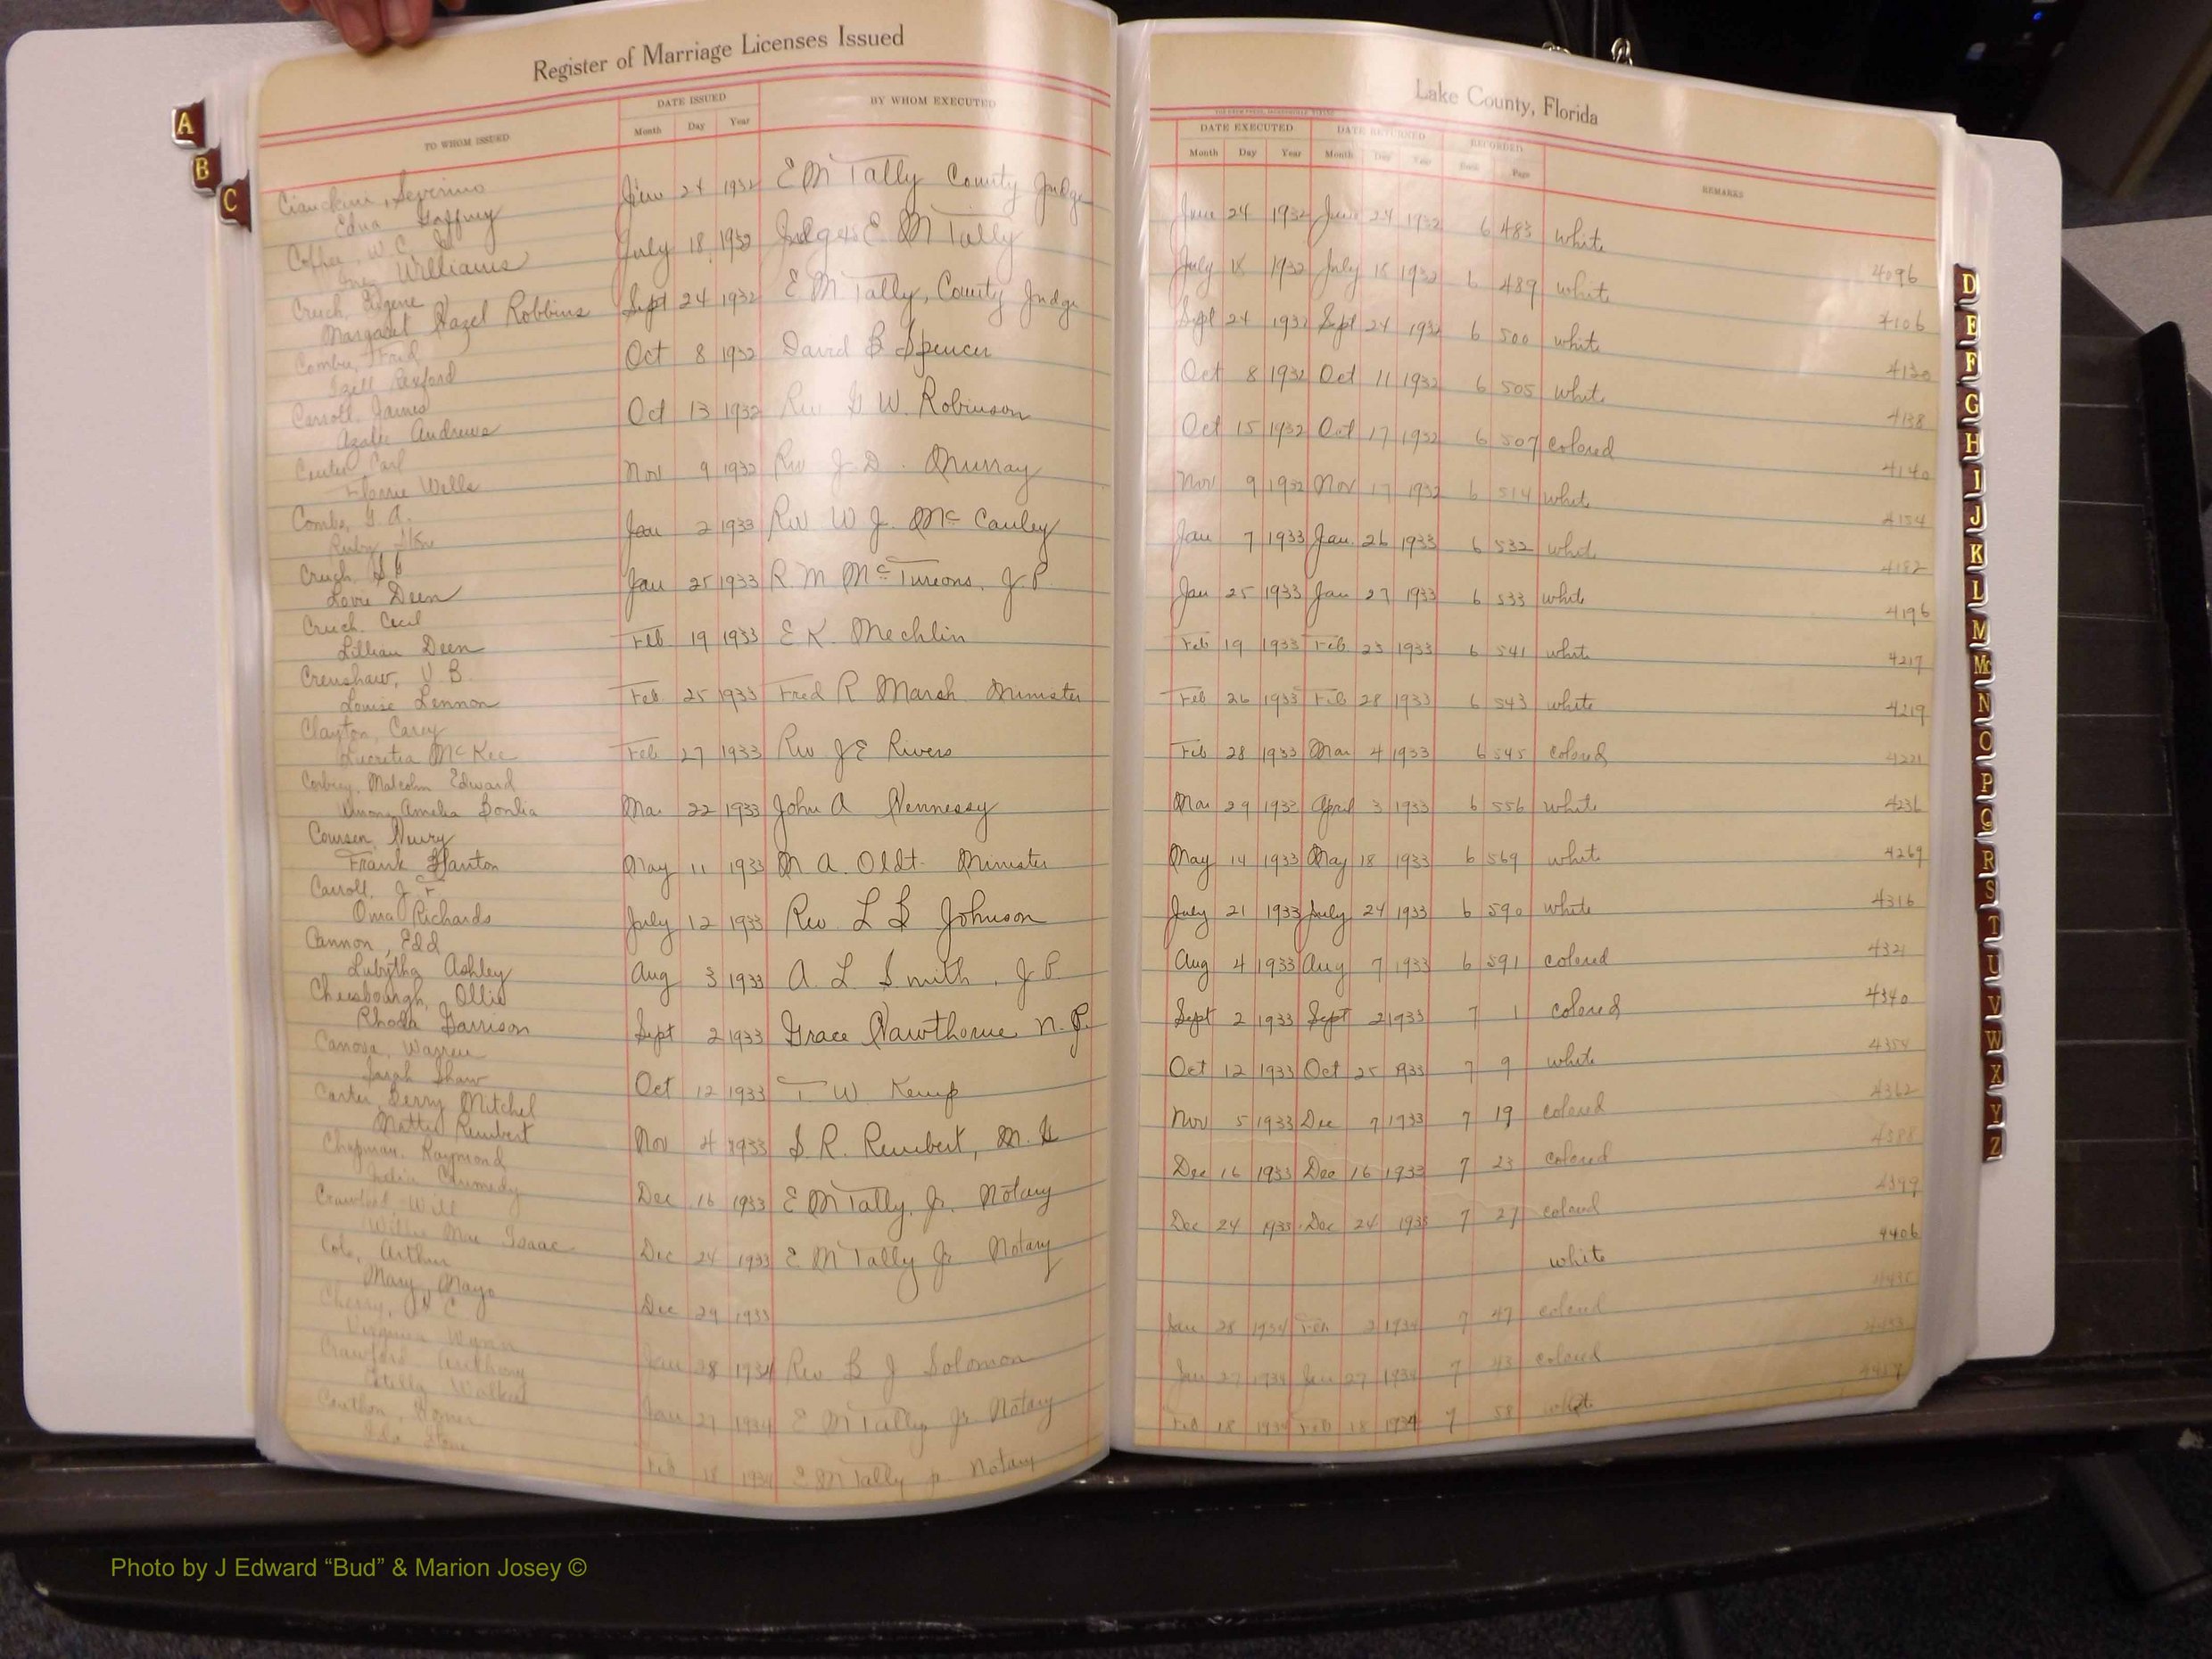 Register of Marriage Licenses Issued
TO WHOM ISSUED
DATE ISSUED
Month Day Year
BY WHOM EXECUTED
Severino June 24 1932 E M Tally County Judge
Edna Gaffney
Coffee, W. C. July 18 1932 Judge E M Tally
Williams
Eugene Sept 24 1932 E M Tally, County Judge
Margaret Hazel Robbins
Fred Oct 8 1932 David B Spencer
Rexford
Carroll, James Oct 13 1932 Rev W. Robinson
Azalie Andrews
Carl Nov 9 1932 Rev J. D. Murray
Wells
Combs, G. A. Jan 2 1933 Rev W J. McCauley
Ruby
Jan 25 1933 R M J P.
Lovie Deen
Cecil Feb 19 1933 E K. Mechlin
Lillian Deen
Crenshaw, V. B. Feb 25 1933 Fred R Marsh Minister
Louise Lennon
Clayton, Carey Feb 27 1933 Rev J E Rivers
Lucretia McKee
Malcolm Edward Mar 22 1933 John A Hennessy
Amelia
Coursen, May 11 1933 M A. Oldt Minister
Frank
Carroll, J F July 12 1933 Rev. L B Johnson
Oma Richards
Cannon, Edd Aug 3 1933 A. L Smith, J P
Lubytha Ashley
Ollie Sept 2 1933 Grace Hawthorne n. P.
Rhoda Garrison
Warren Oct 12 1933 T W. Kemp
Sarah Shaw
Carter, Mitchel Nov 4 1933 S R. Rembert, M. G
Mattie Rembert
Chapman, Raymond Dec 16 1933 E M Tally, Jr. Notary
Crawford, Will Dec 24 1933 E M Tally Jr Notary
Willie Mae Isaac
Cole, Arthur Dec 29 1933
Mary Mayo
Cherry, C. Jan 28 1934 Rev B J Solomon
Virginia Wynn
Crawford Anthony Jan 27 1934 E M Tally Jr Notary
Feb 18 1934 E M Tally Jr Notary
Lake County, Florida
DATE EXECUTED
DATE RETURNED
RECORDED
REMARKS
Month Day Year Month Day Year Book Page
June 24 1932 June 24 1932 6 483 white 4096
July 18 1932 July 18 1932 6 489 white 4106
Sept 24 1932 Sept 24 1932 6 500 white 4130
Oct 8 1932 Oct 11 1932 6 505 white 4138
Oct 15 1932 Oct 17 1932 6 507 colored 4140
Nov 9 1932 Nov 17 1932 6 514 white 4154
Jan 7 1933 Jan. 26 1933 6 532 white 4182
Jan 25 1933 Jan 27 1933 6 533 white 4196
Feb 19 1933 Feb 23 1933 6 541 white 4217
Feb 26 1933 Feb 28 1933 6 543 white 4219
Feb 28 1933 Mar 4 1933 6 545 colored 4221
Mar 29 1933 April 3 1933 6 556 white 4236
May 14 1933 May 18 1933 6 569 white 4269
July 21 1933 July 24 1933 6 590 white 4316
Aug 4 1933 Aug 7 1933 6 591 colored 4321
Sept 2 1933 Sept 2 1933 7 1 colored 4340
Oct 12 1933 Oct 25 1933 7 9 white 4354
Nov 5 1933 Dec 7 1933 7 19 colored 4362
Dec 16 1933 Dec 16 1933 7 23 colored 4388
Dec 24 1933 Dec 24 1933 7 27 colored 4399
white 4406
Jan 28 1934 Feb 2 1934 7 47 colored
Jan 27 1934 Jan 27 1934 7 43 colored
Feb 18 1934 Feb 18 1934 7 58 white
A
B
C
D
E
F
G
H
I
J
K
L
M
Mc
N
O
P
Q
R
S
T
U
V
W
X
Y
Z
Photo by J Edward “Bud” & Marion Josey ©